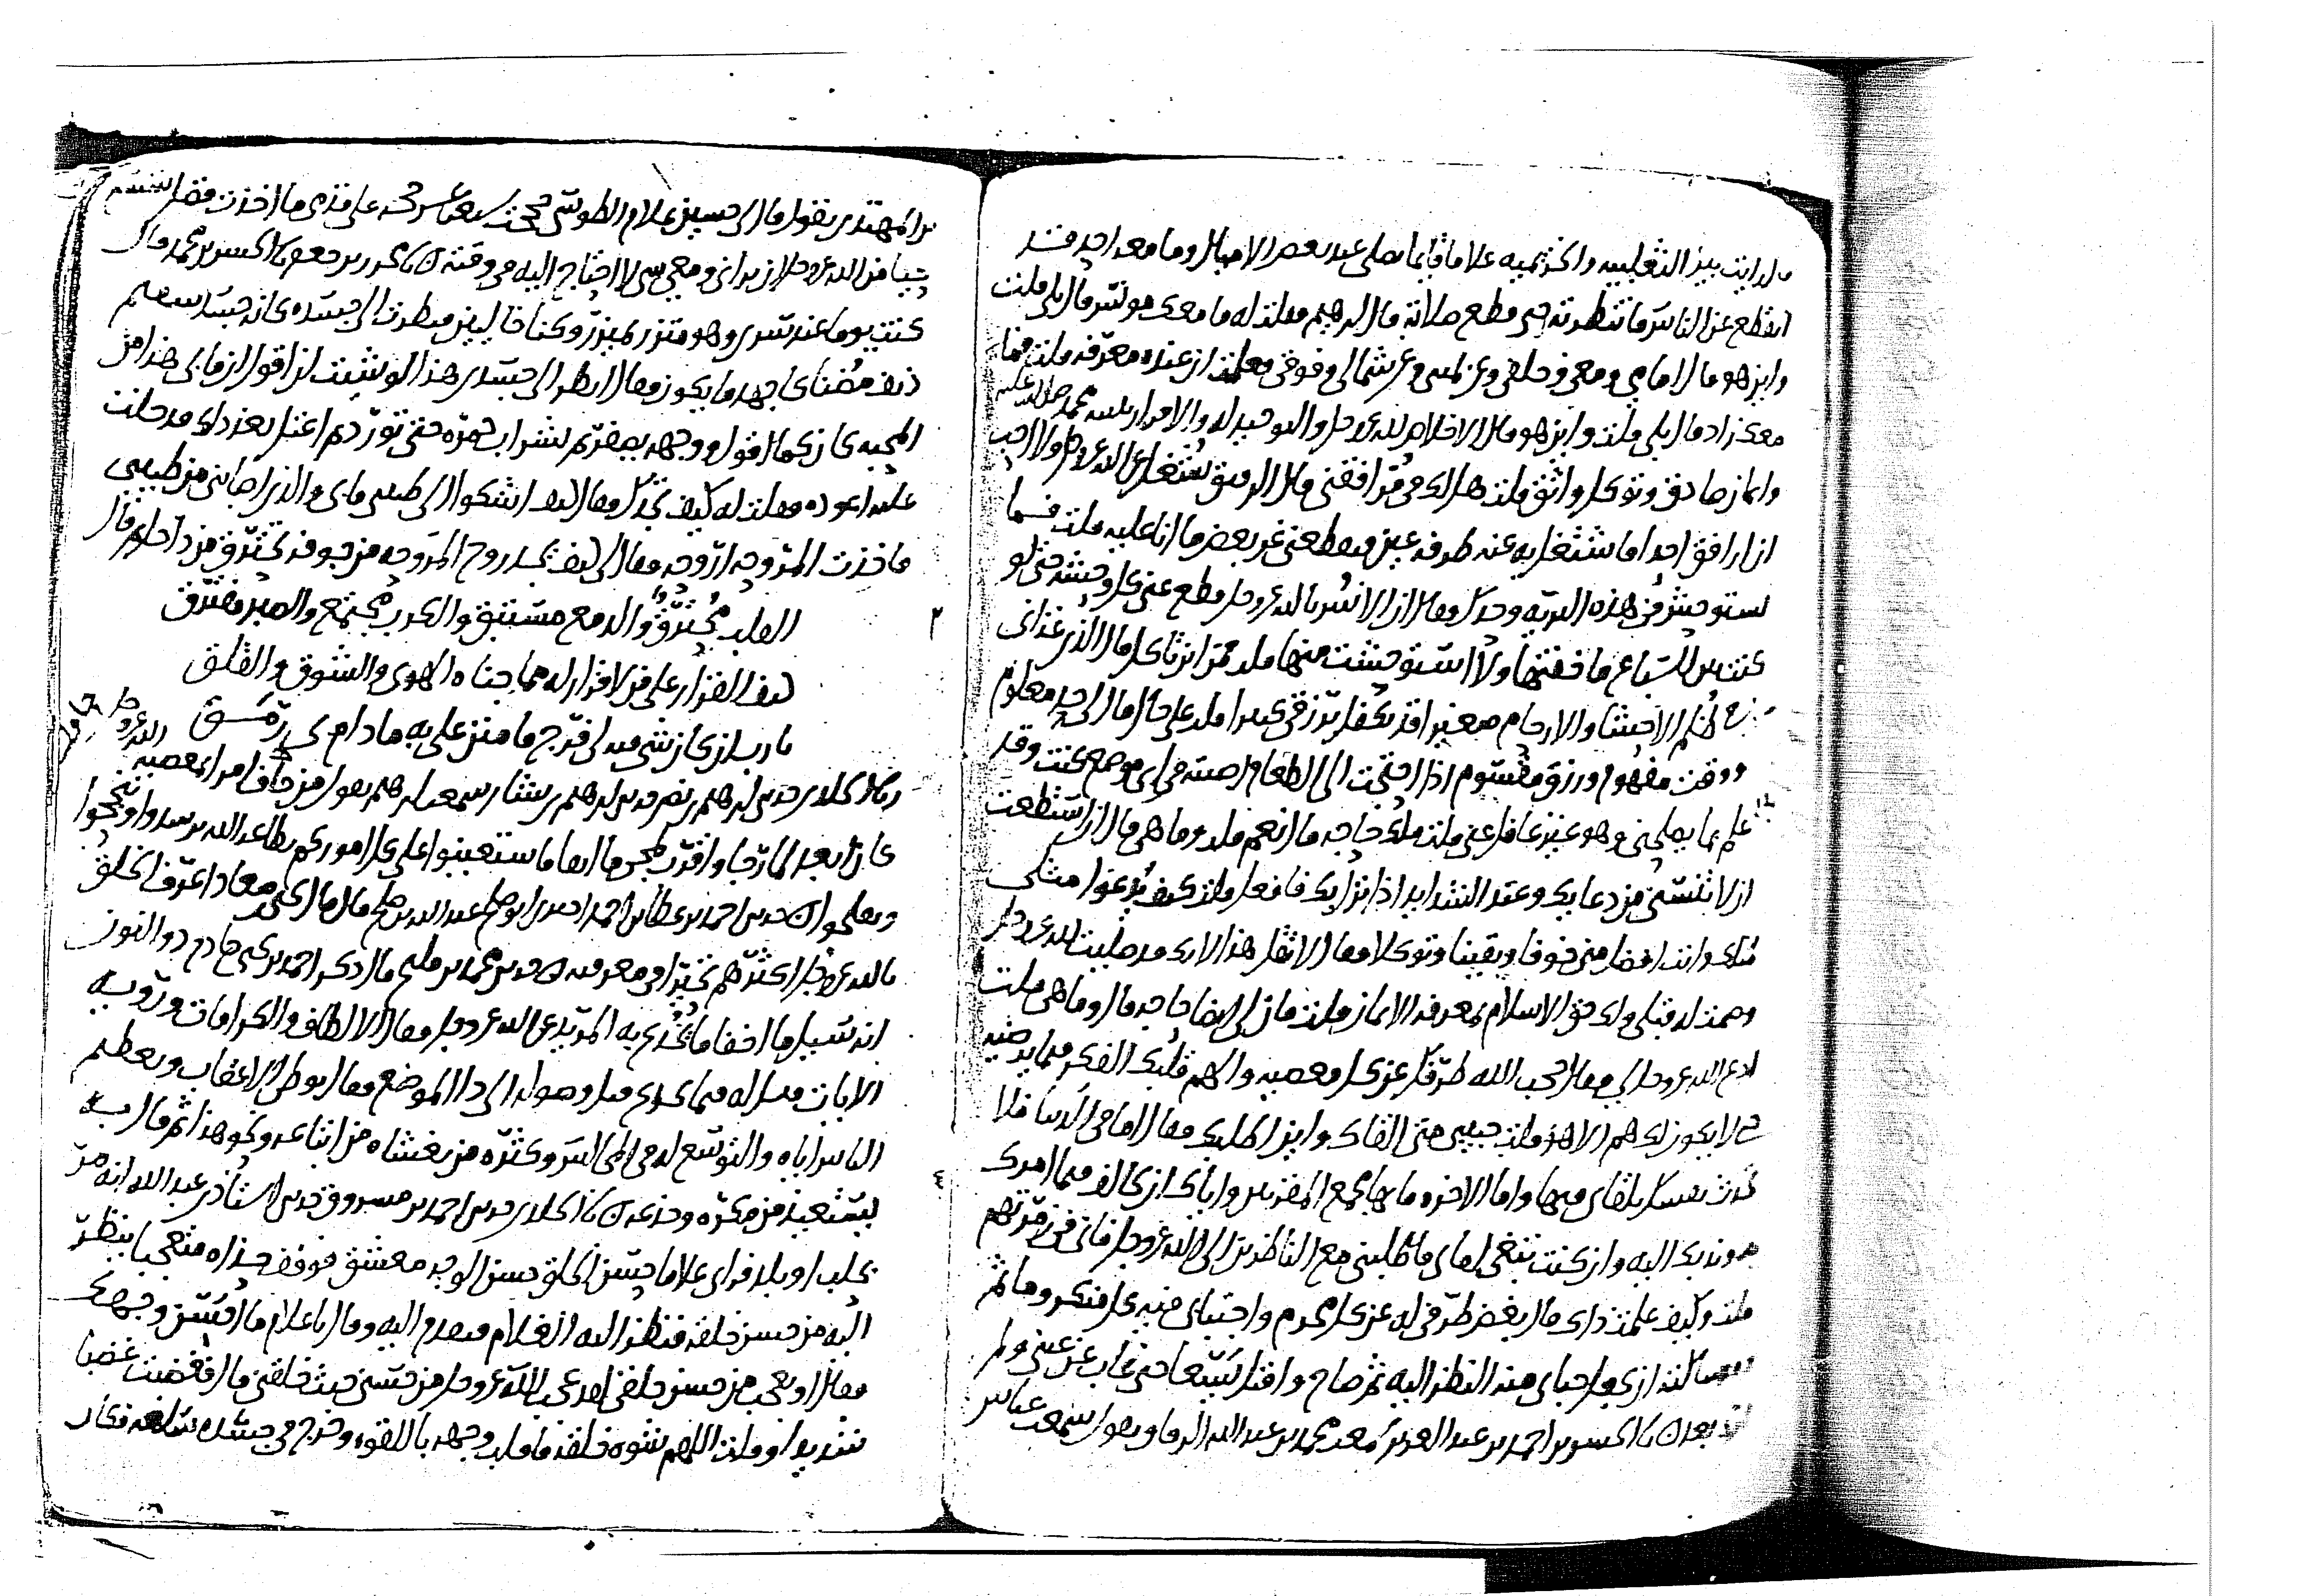 قال رايت بين الثعلبيه والخزيميه غلاما قايما يصلي عند بعض الاميال وما معه احد قد
انقطع عن الناس فانتظرته حتى قطع صلاته قال ابرهيم فقلت له ما معك مونس قال بلى قلت
واين هو قال امامي ومعي وخلفي وعن يميني وعن شمالي وفوقي فعلمت ان عنده معرفه قلت فما
معك زاد قال بلى قلت واين هو قال الاخلاص لله عز وجل والتوحيد له والاقرار بنبيه محمد صلى الله عليه
وايمان صادق وتوكل واثق قلت هل لك في مرافقتي قال الرفيق يشغل عن الله عز وجل ولا احب
ان ارافق احدا فاشتغل به عنه طرفه عين فيقطعني عن بعض ما انا عليه قلت فما
تستوحش في هذه البريه وحدك فقال ان الانس بالله عز وجل قطع عني كل وحشه حتى لو
كنت بين السباع ما خفتها ولا استوحشت منها قلت فمن اين تاكل قال الذي غذاني
في ظلم الاحشا والارحام صغيرا قد تكفل برزقي كبيرا قلت على حال قال لي حد معلوم
ووقت مفهوم ورزق مقسوم اذا احتجت الى الطعام اصبته في اي موضع كنت وقد
علم بما يصلحني وهو غير غافل عني قلت لك حاجه قال نعم قلت وما هي قال ان استطعت
ان لا تنسني من دعايك وعند الشدايد اذا نزل بك فافعل قلت كيف يدعوا مثلي
لمثلك وانت افضل مني خوفا ويقينا وتوكلا فقال لا تقل هذا لانك قد صليت لله عز وجل
وصمت له قبلي ولك حق الاسلام بمعرفه الايمان قلت فان لي ايضا حاجه قال وما هي قلت
ادع الله عز وجل لي فقال حجب الله طرفك عن كل معصيه والهم قلبك الفكر فيما يرضيه
حتى لا يكون لك هم الا هو قلت حبيبي متى القاك واين اطلبك فقال اما في الدنيا فلا
تحدث نفسك بلقاي فيها واما الاخره فانها مجمع المقربين واياك ان تخالف فيما امرك
وندبك اليه وان كنت تبغي لقاي فاطلبني مع الناظرين الى الله عز وجل فاني في زمرتهم
قلت وكيف علمت ذلك قال بغض طرفي له عن كل محرم واجتنابي فيه كل منكر وماثم
وسالته ان يجعل جنتي منه النظر اليه ثم صاح واقبل يسعا حتى غاب عن عيني ولم
بعد ن نا الحسين بن احمد بن عبد العزيز سمعت محمد بن عبد الله الرماني يقول سمعت عباس
بن المهتدي يقول قال لي حسين غلام الطوسي حججت سبعا عشر حجه على قدمي ما اخذت فضل سهم
حيا من الله عز وجل ان يراني ومعي شي لا احتاج اليه في وقته ن نا محمد بن جعفر نا الحسين بن محمد قال
كنت يوما عند سري وهو متزر بميزر وكنا خاليين فنظرت الى جسده كانه جسد سقيم
دنف مضنا كاجهد ما يكون فقال انظر الى جسدي هذا لو شيت لن اقول ان ما بي هذا من
المحبه كان كما اقول ووجهه بصفره ثم تشراب حمره حتى تورد ثم اعتل بعد ذلك فدخلت
عليه اعوده فقلت له كيف تجدك فقال كيف اشكوا الى طبيبي ما بي والذي اصابني من طبيبي
فاخذت المروحه اروحه فقال لي كيف يجد روح المروحه من جوفه يحترق من داخل ثم قال
القلب محترق والدمع مستبق والكرب مجتمع والصبر مفترق
كيف القرار على من لا قرار له مما جناه الهوى والشوق والقلق
يارب ان كان شي فيه لي فرج فامنن علي به ما دام لي رمق
ن نا الخلدي حدثني ابرهيم بن نصر حدثني ابرهيم بن بشار سمعت ابرهيم يقول من خاف امر المعصيه
كان ابعد لما رجا واقرب لمجي ما اتقا فاستعينوا على كل اموركم بطاعه الله ترشدوا وتنجحوا
وتصلحوا ن حدثني احمد بن عطا نا احمد بن ابو صالح عبد الله بن صالح قال قال لي يحيى بن معاذ اعرف الخلق
بالله عز وجل اكثرهم تحيرا في معرفته ن حدثني محمد بن مليح قال ذكر احمد بن يحيى خادم ذو النون
انه سيل ما اخفا ما يخدع به المريد عن الله عز وجل فقال الالطاف والكرامات وروييه
الايات قيل له فيما يخدع قبل وصوله الى ذا الموضع فقال بوطي الاعقاب وتعظيم
الناس اياه والتوسع له في المجالس وكثره من يغشاه من اتباعه ونحو هذا ثم قال به
يستعيذ من مكره وخدعه ن نا الخلدي حدثني احمد بن مسروق حدثني استاذ بن عبد الله انه مر
بحلب او بلد فراى غلاما حسن الخلق حسن الوجه معشق فوقف حذاه متعجبا ينظر
اليه من حسن خلقه فنظر اليه الغلام فتقدم اليه وقال يا غلام ما احسن وجهك
فقال اوتعجب من حسن خلقي لقد عجب الله عز وجل من حسني حيث خلقني قال فغضبت غضبا
شديدا وقلت اللهم شوه خلقه فانقلب وجهه باللقوه وخرج في جسده سلعه فكان